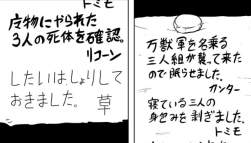 トミモ
魔物にやられた
3人の死体を確認。
リコーン
したいはしょりして
おきました。 草
万獣軍を名乗る
三人組が襲って来た
ので眠らせました。
カンター
寝ている三人の
身ぐるみを剥ぎました。
トミモ